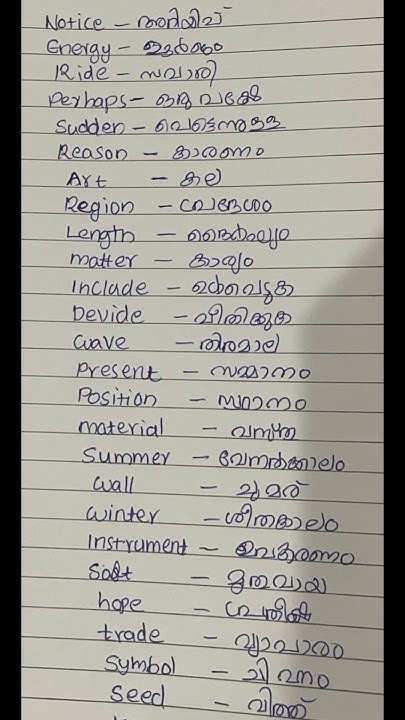 Notice - അറിയിപ്പ്
Energy - ഊർജ്ജം
Ride - സവാരി
Perhaps - ഒരു പക്ഷേ
Sudden - പെട്ടെന്നുള്ള
Reason - കാരണം
Art - കല
Region - പ്രദേശം
Length - ദൈർഘ്യം
matter - കാര്യം
Include - ഉൾപ്പെടുക
Devide - വീതിക്കുക
wave - തിരമാല
Present - സമ്മാനം
Position - സ്ഥാനം
material - വസ്തു
Summer - വേനൽക്കാലം
wall - ചുമര്
winter - ശീതകാലം
Instrument - ഉപകരണം
Soft - മൃതുവായ
hope - പ്രതീക്ഷ
trade - വ്യാപാരം
Symbol - ചിഹ്നം
Seed - വിത്ത്